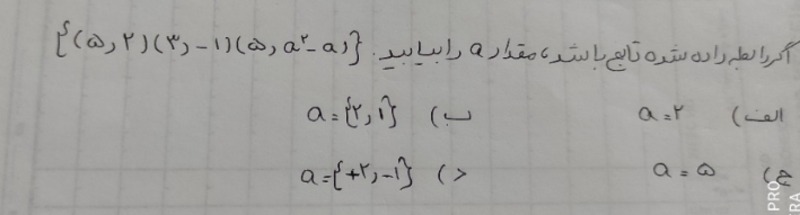 اگر رابطه داده شده تابع باشد، مقدار a را بیابید. {(۵,۲)(۳,-۱)(۵,a²-a)}
الف) a=۲ ب) a={۲,۱}
ج) a=۵ د) a={+۲,-۱}
PRO
RA